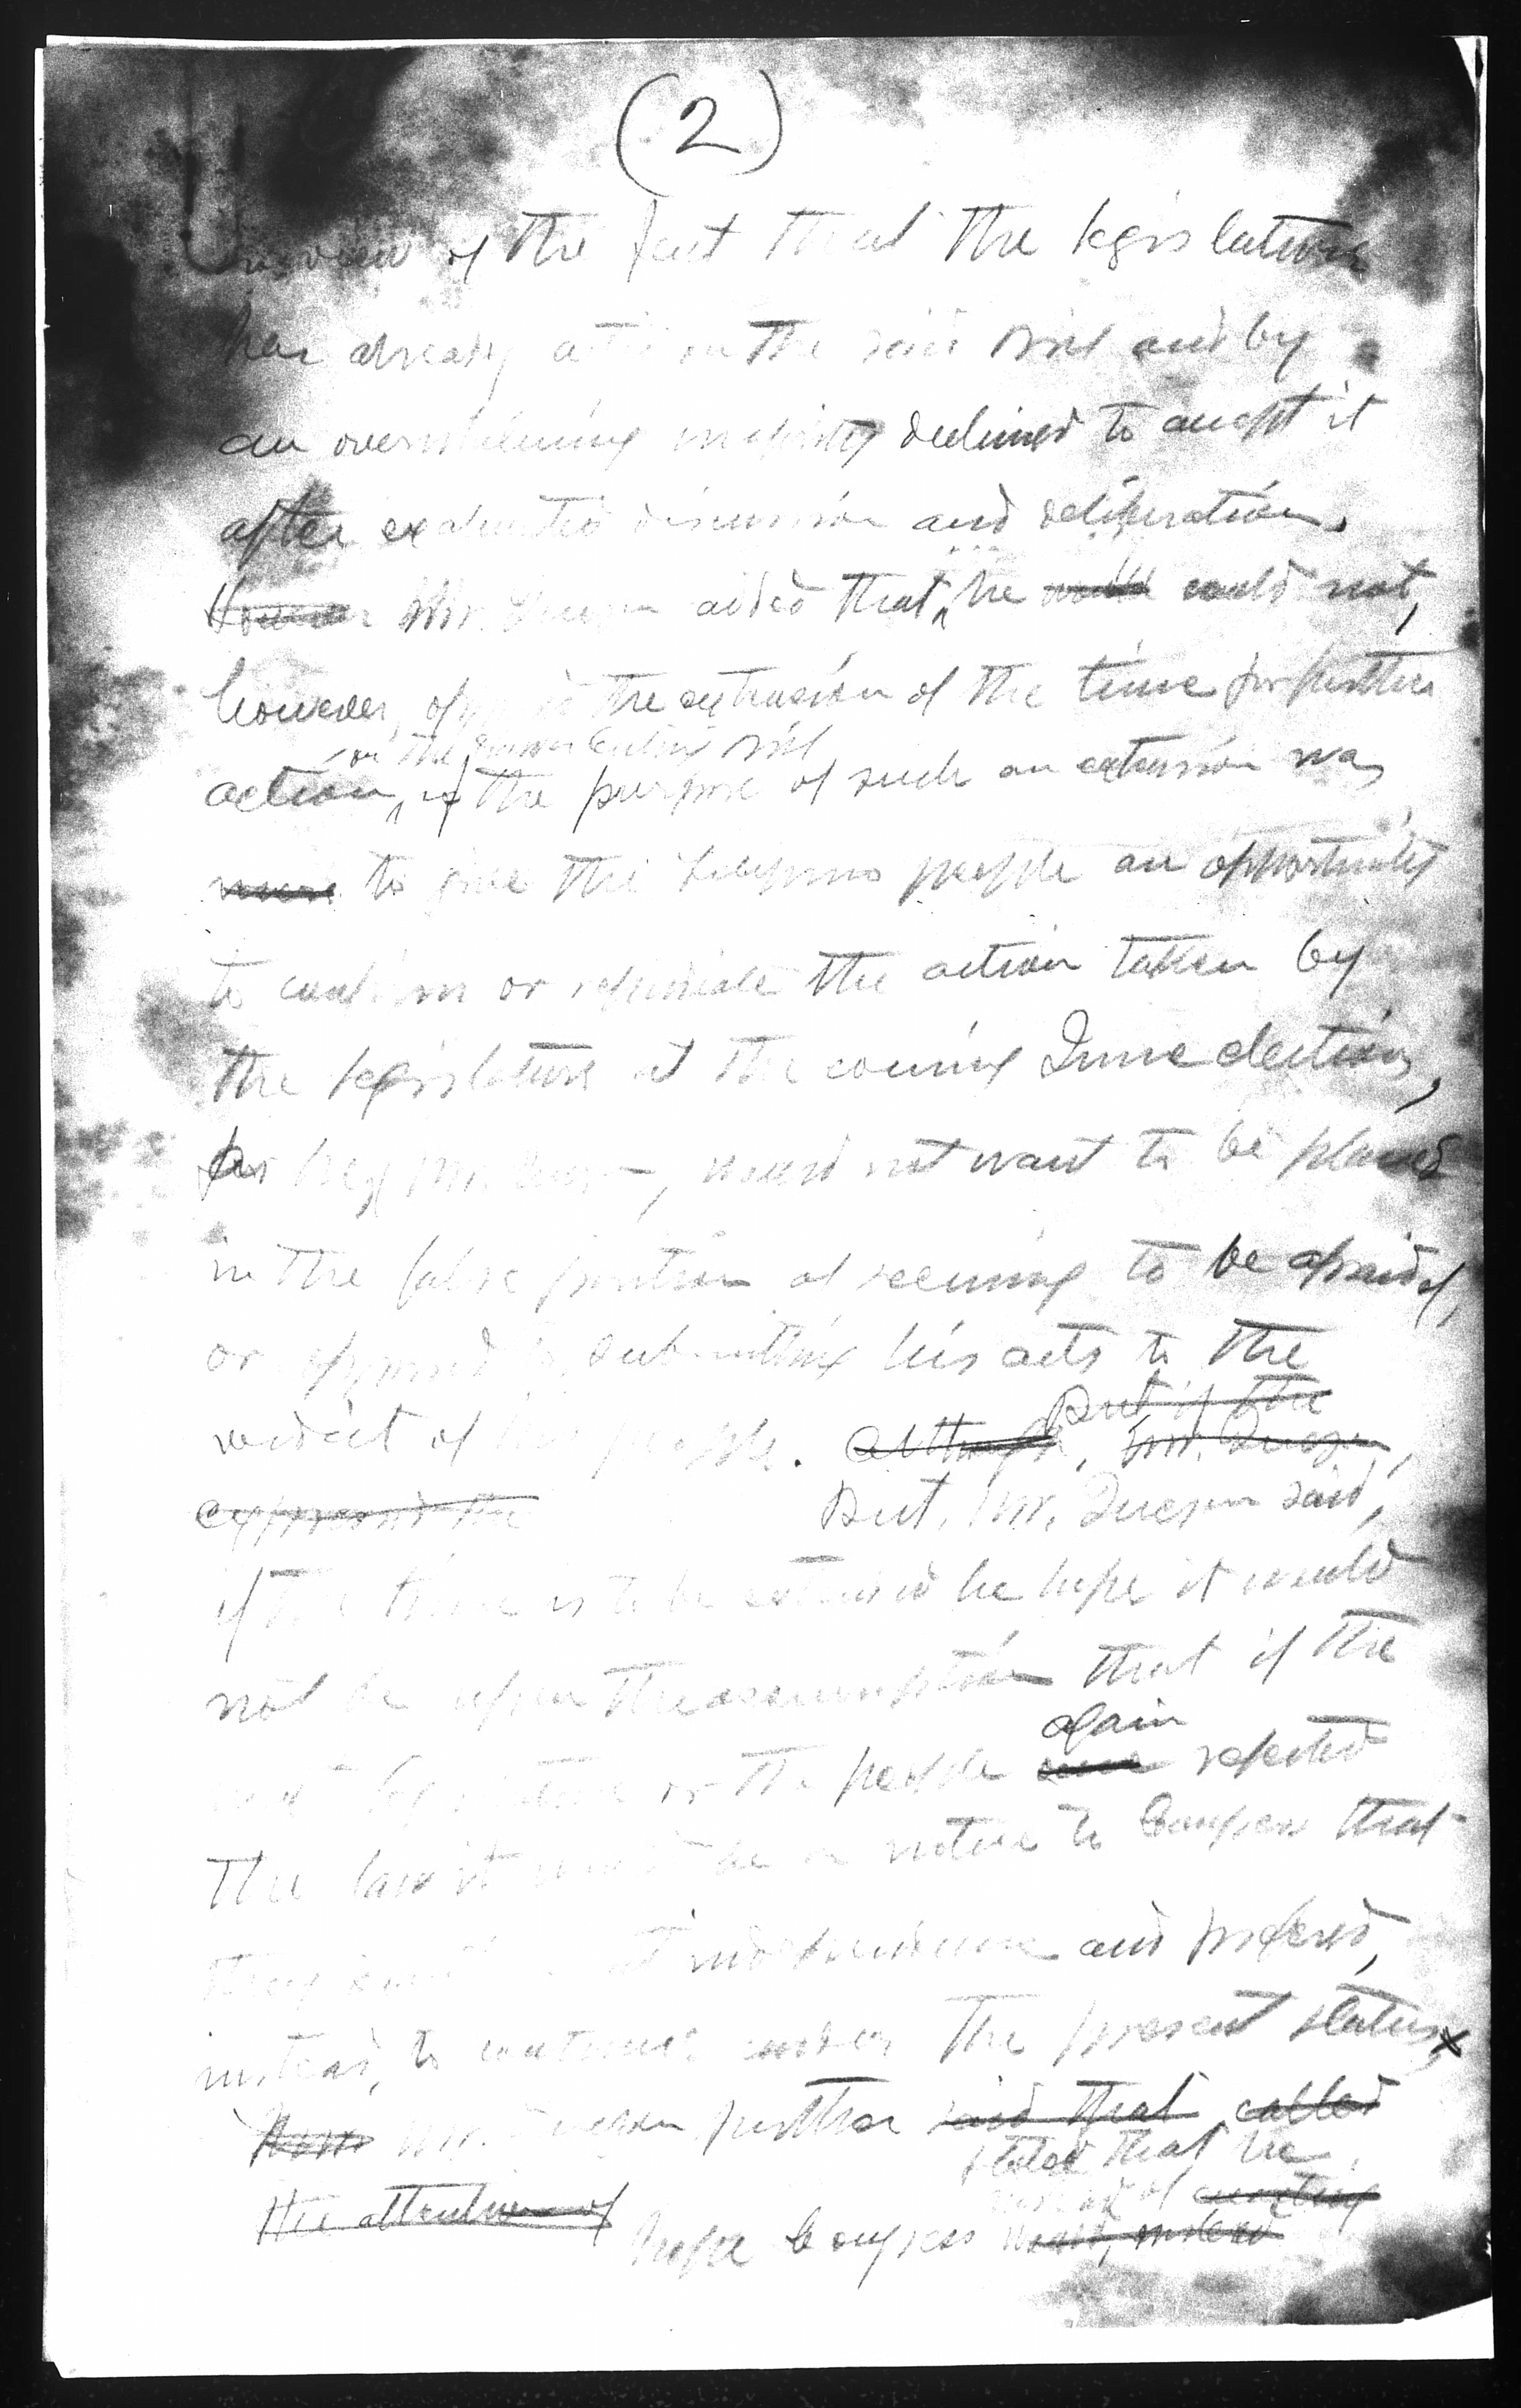 (2)
in view of the fact that the legislature
has already acted on the said bill and by
an overwhelming majority declined to accept it
after exhaustive discussion and deliberation.
However Mr. Quezon added that he would could not,
however, oppose the extension of the time for further
on the Hawes Cutting bill
action, if the purpose of such an extension was
were to give the Filipino people an opportunity
to confirm or repudiate the action taken by
the legislature at the coming June elections,
for he, Mr. Quezon, would not want to be placed
in the false position of seeming to be afraid of,
or opposed to submitting his acts to the
But if the
verdict of his people. Although, Mr. Quezon,
expressed the But, Mr. Quezon said,
if the time is to be extended he hope it would
not be upon the assumption that if the
again
next legislature or the people were rejected
the law it would be a notice to Congress that
they independence and prefered,
instead, to continue under the present status.
Mr. Quezon further said that called
stated that he
the attention of instead of enacting
hope Congress would, instead